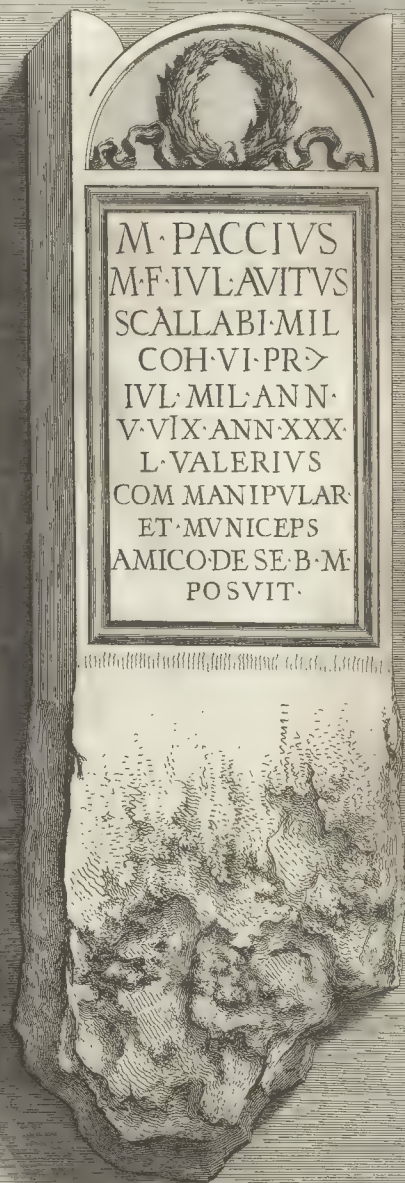 M·PACCIVS
M·F·IVL·AVITVS
SCALLABI·MIL
COH·VI·PR>
IVL·MIL·ANN·
V·VIX·ANN·XXX·
L·VALERIVS
COM MANIPVLAR·
ET·MVNICEPS
AMICO·DE SE·B·M·
POSVIT·